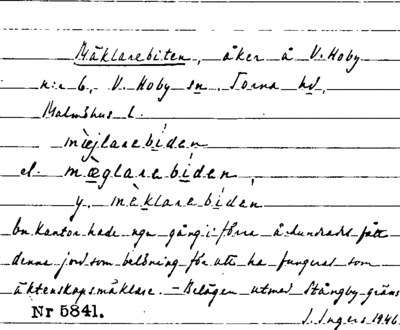 Mäklarebiten, åker å V. Hoby
n:r 6, V. Hoby sn. Torna hd,
Malmöhus l.
mèjlarebíden
el. mæ̀glarebíden
y. mèklarebíden
En kantor hade ngn gång i förra århundradet fått
denna jord som belöning för att ha fungerat som
äktenskapsmäklare. – Belägen utmed Stångby gräns
Nr 5841.
I. Ingers 1946.